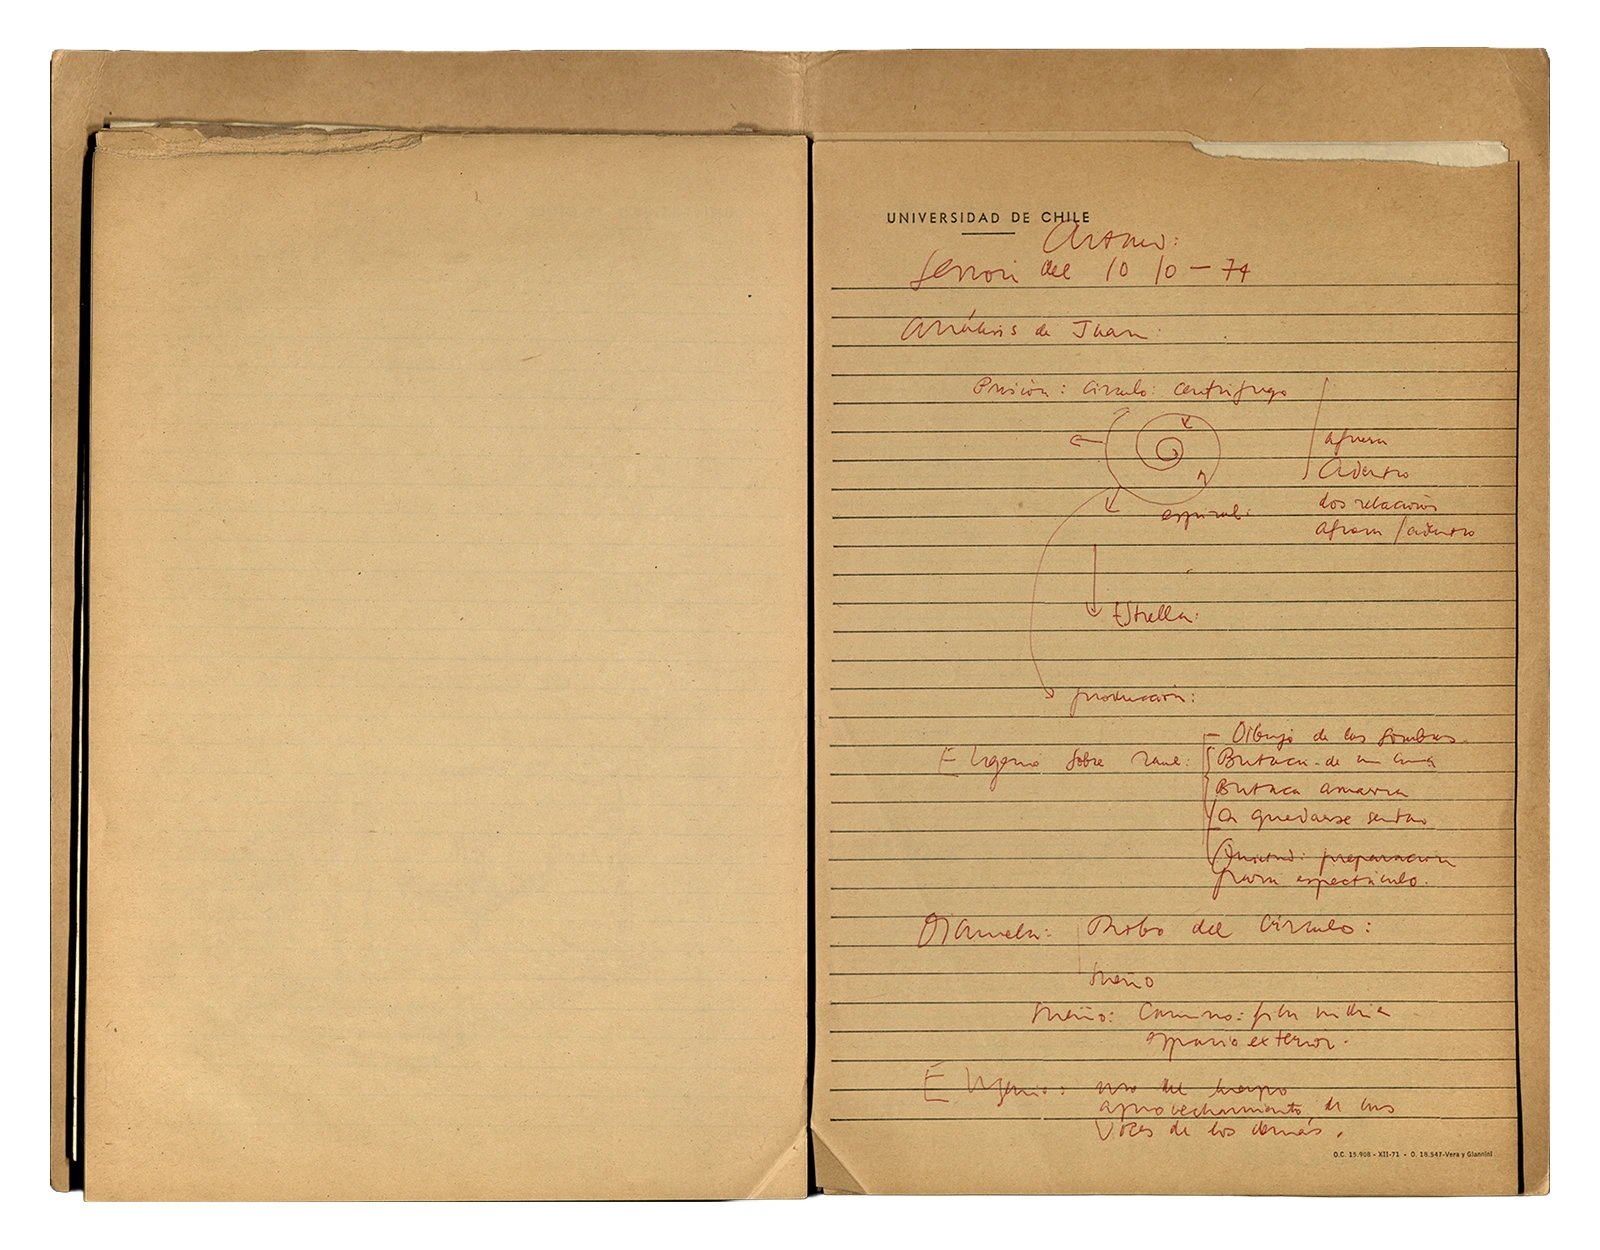 UNIVERSIDAD DE CHILE
Sesión del 10 10 - 74
Análisis de Juan:
Prisión: círculo: centrífugo
afuera
adentro
espiral:
dos relación
afuera / adentro
Estrella:
producción:
- Dibujo de las sombras
Eugenio sobre Raul:
Butaca de un cine
Butaca amarra
a quedarse sentado
preparación
para espectáculo.
Diamela: Robo del círculo:
Sueño
Sueño: Camino:
espacio exterior.
Eugenio: uso del tiempo
aprovechamiento de las
voces de los demás.
O.C. 15.908 - XII-71 - O. 18.547-Vera y Giannini